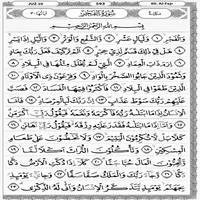 JUZ 30 593 89. Al-Fajr
سُورَةُ الْفَجْرِ
بِسْمِ اللَّهِ الرَّحْمَٰنِ الرَّحِيمِ
وَالْفَجْرِ ١ وَلَيَالٍ عَشْرٍ ٢ وَالشَّفْعِ وَالْوَتْرِ ٣ وَاللَّيْلِ إِذَا يَسْرِ
٤ هَلْ فِي ذَٰلِكَ قَسَمٌ لِّذِي حِجْرٍ ٥ أَلَمْ تَرَ كَيْفَ فَعَلَ رَبُّكَ بِعَادٍ
٦ إِرَمَ ذَاتِ الْعِمَادِ ٧ الَّتِي لَمْ يُخْلَقْ مِثْلُهَا فِي الْبِلَادِ ٨
وَثَمُودَ الَّذِينَ جَابُوا الصَّخْرَ بِالْوَادِ ٩ وَفِرْعَوْنَ ذِي الْأَوْتَادِ ١٠
الَّذِينَ طَغَوْا فِي الْبِلَادِ ١١ فَأَكْثَرُوا فِيهَا الْفَسَادَ ١٢ فَصَبَّ عَلَيْهِمْ
رَبُّكَ سَوْطَ عَذَابٍ ١٣ إِنَّ رَبَّكَ لَبِالْمِرْصَادِ ١٤ فَأَمَّا الْإِنسَانُ
إِذَا مَا ابْتَلَاهُ رَبُّهُ فَأَكْرَمَهُ وَنَعَّمَهُ فَيَقُولُ رَبِّي أَكْرَمَنِ ١٥
وَأَمَّا إِذَا مَا ابْتَلَاهُ فَقَدَرَ عَلَيْهِ رِزْقَهُ فَيَقُولُ رَبِّي أَهَانَنِ ١٦
كَلَّا بَل لَّا تُكْرِمُونَ الْيَتِيمَ ١٧ وَلَا تَحَاضُّونَ عَلَىٰ طَعَامِ
الْمِسْكِينِ ١٨ وَتَأْكُلُونَ التُّرَاثَ أَكْلًا لَّمًّا
١٩ وَتُحِبُّونَ الْمَالَ حُبًّا جَمًّا ٢٠ كَلَّا إِذَا دُكَّتِ الْأَرْضُ دَكًّا دَكًّا
٢١ وَجَاءَ رَبُّكَ وَالْمَلَكُ صَفًّا صَفًّا ٢٢ وَجِيءَ يَوْمَئِذٍ
بِجَهَنَّمَ يَوْمَئِذٍ يَتَذَكَّرُ الْإِنسَانُ وَأَنَّىٰ لَهُ الذِّكْرَىٰ ٢٣